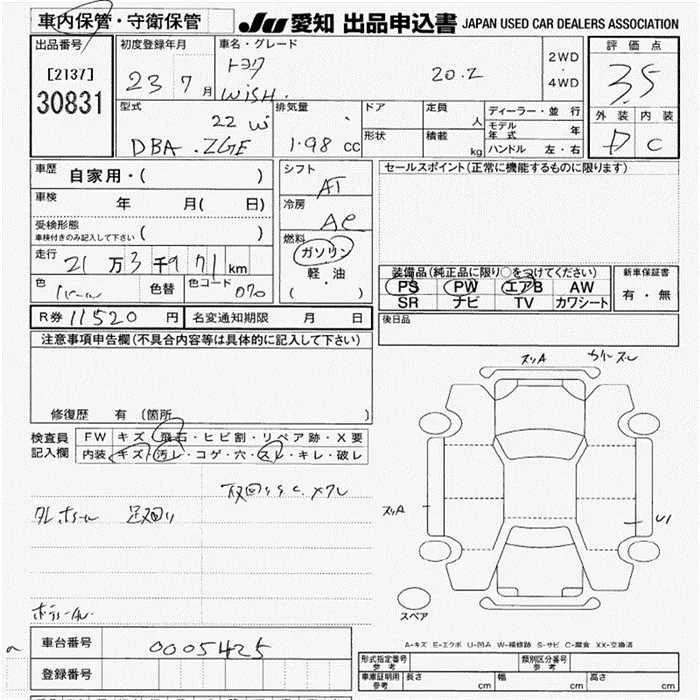 車内保管・守衛保管
JU 愛知 出品申込書 JAPAN USED CAR DEALERS ASSOCIATION
出品番号 初度登録年月 車名・グレード 2WD・4WD 評価点
[2137] 23 7月 トヨタ 20.Z 3.5
30831 WiSH.
外装 内装
D C
型式 排気量 ドア 定員 人 ディーラー・並行
22W 形状 積載 kg モデル年式 年
DBA.ZGE 1.98 cc ハンドル 左・右
車歴 自家用・( ) シフト AT セールスポイント(正常に機能するものに限ります)
車検 年 月( 日) 冷房 AC
受検形態 ( )
車検付きのみ記入して下さい
燃料 ガソリン
軽・油
( )
走行 21万3千971km
色 色替 色コード 070
装備品(純正品に限り○をつけてください) 新車保証書
PS PW エアB AW 有・無
SR ナビ TV カワシート
R券 11520円 名変通知期限 月 日 後日品
注意事項申告欄(不具合内容等は具体的に記入して下さい)
修復歴 有 (箇所 )
検査員記入欄 FW キズ・飛石・ヒビ割・リペア跡・X要
内装 キズ・汚レ・コゲ・穴・スレ・キレ・破レ
スリA
スリA
U1
スペア
A-キズ E-エクボ U-凹み W-補修跡 S-サビ C-腐食 XX-交換済
車台番号 0005425
登録番号
形式指定番号 参考 類別区分番号 参考
車庫証明用 参考 長さ cm 幅 cm 高さ cm